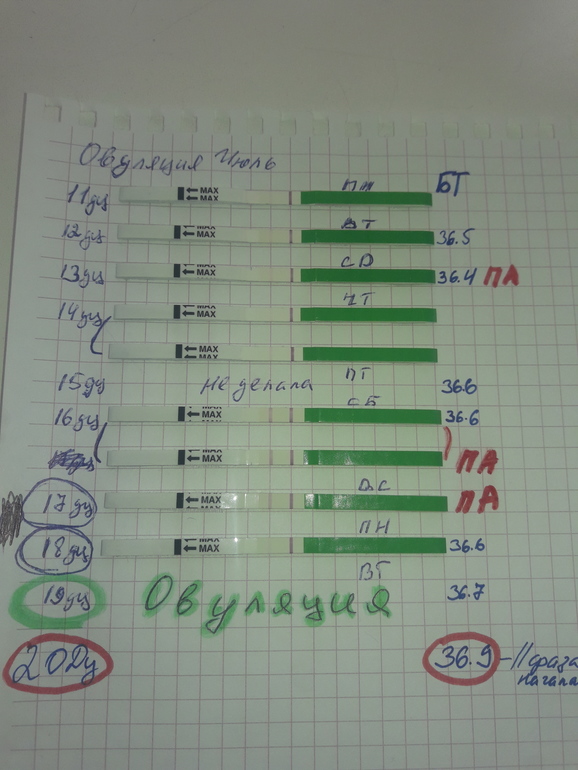 Овуляция Июль
БТ
11дц MAX MAX ПН
12дц MAX MAX ВТ 36.5
13дц MAX MAX СР 36.4 ПА
14дц MAX MAX ЧТ
MAX MAX
15дц не делала ПТ 36.6
16дц MAX MAX СБ 36.6
MAX MAX ПА
17дц MAX MAX ВС ПА
18дц MAX MAX ПН 36.6
19дц Овуляция ВТ 36.7
20дц 36.9 - II фаза
начала